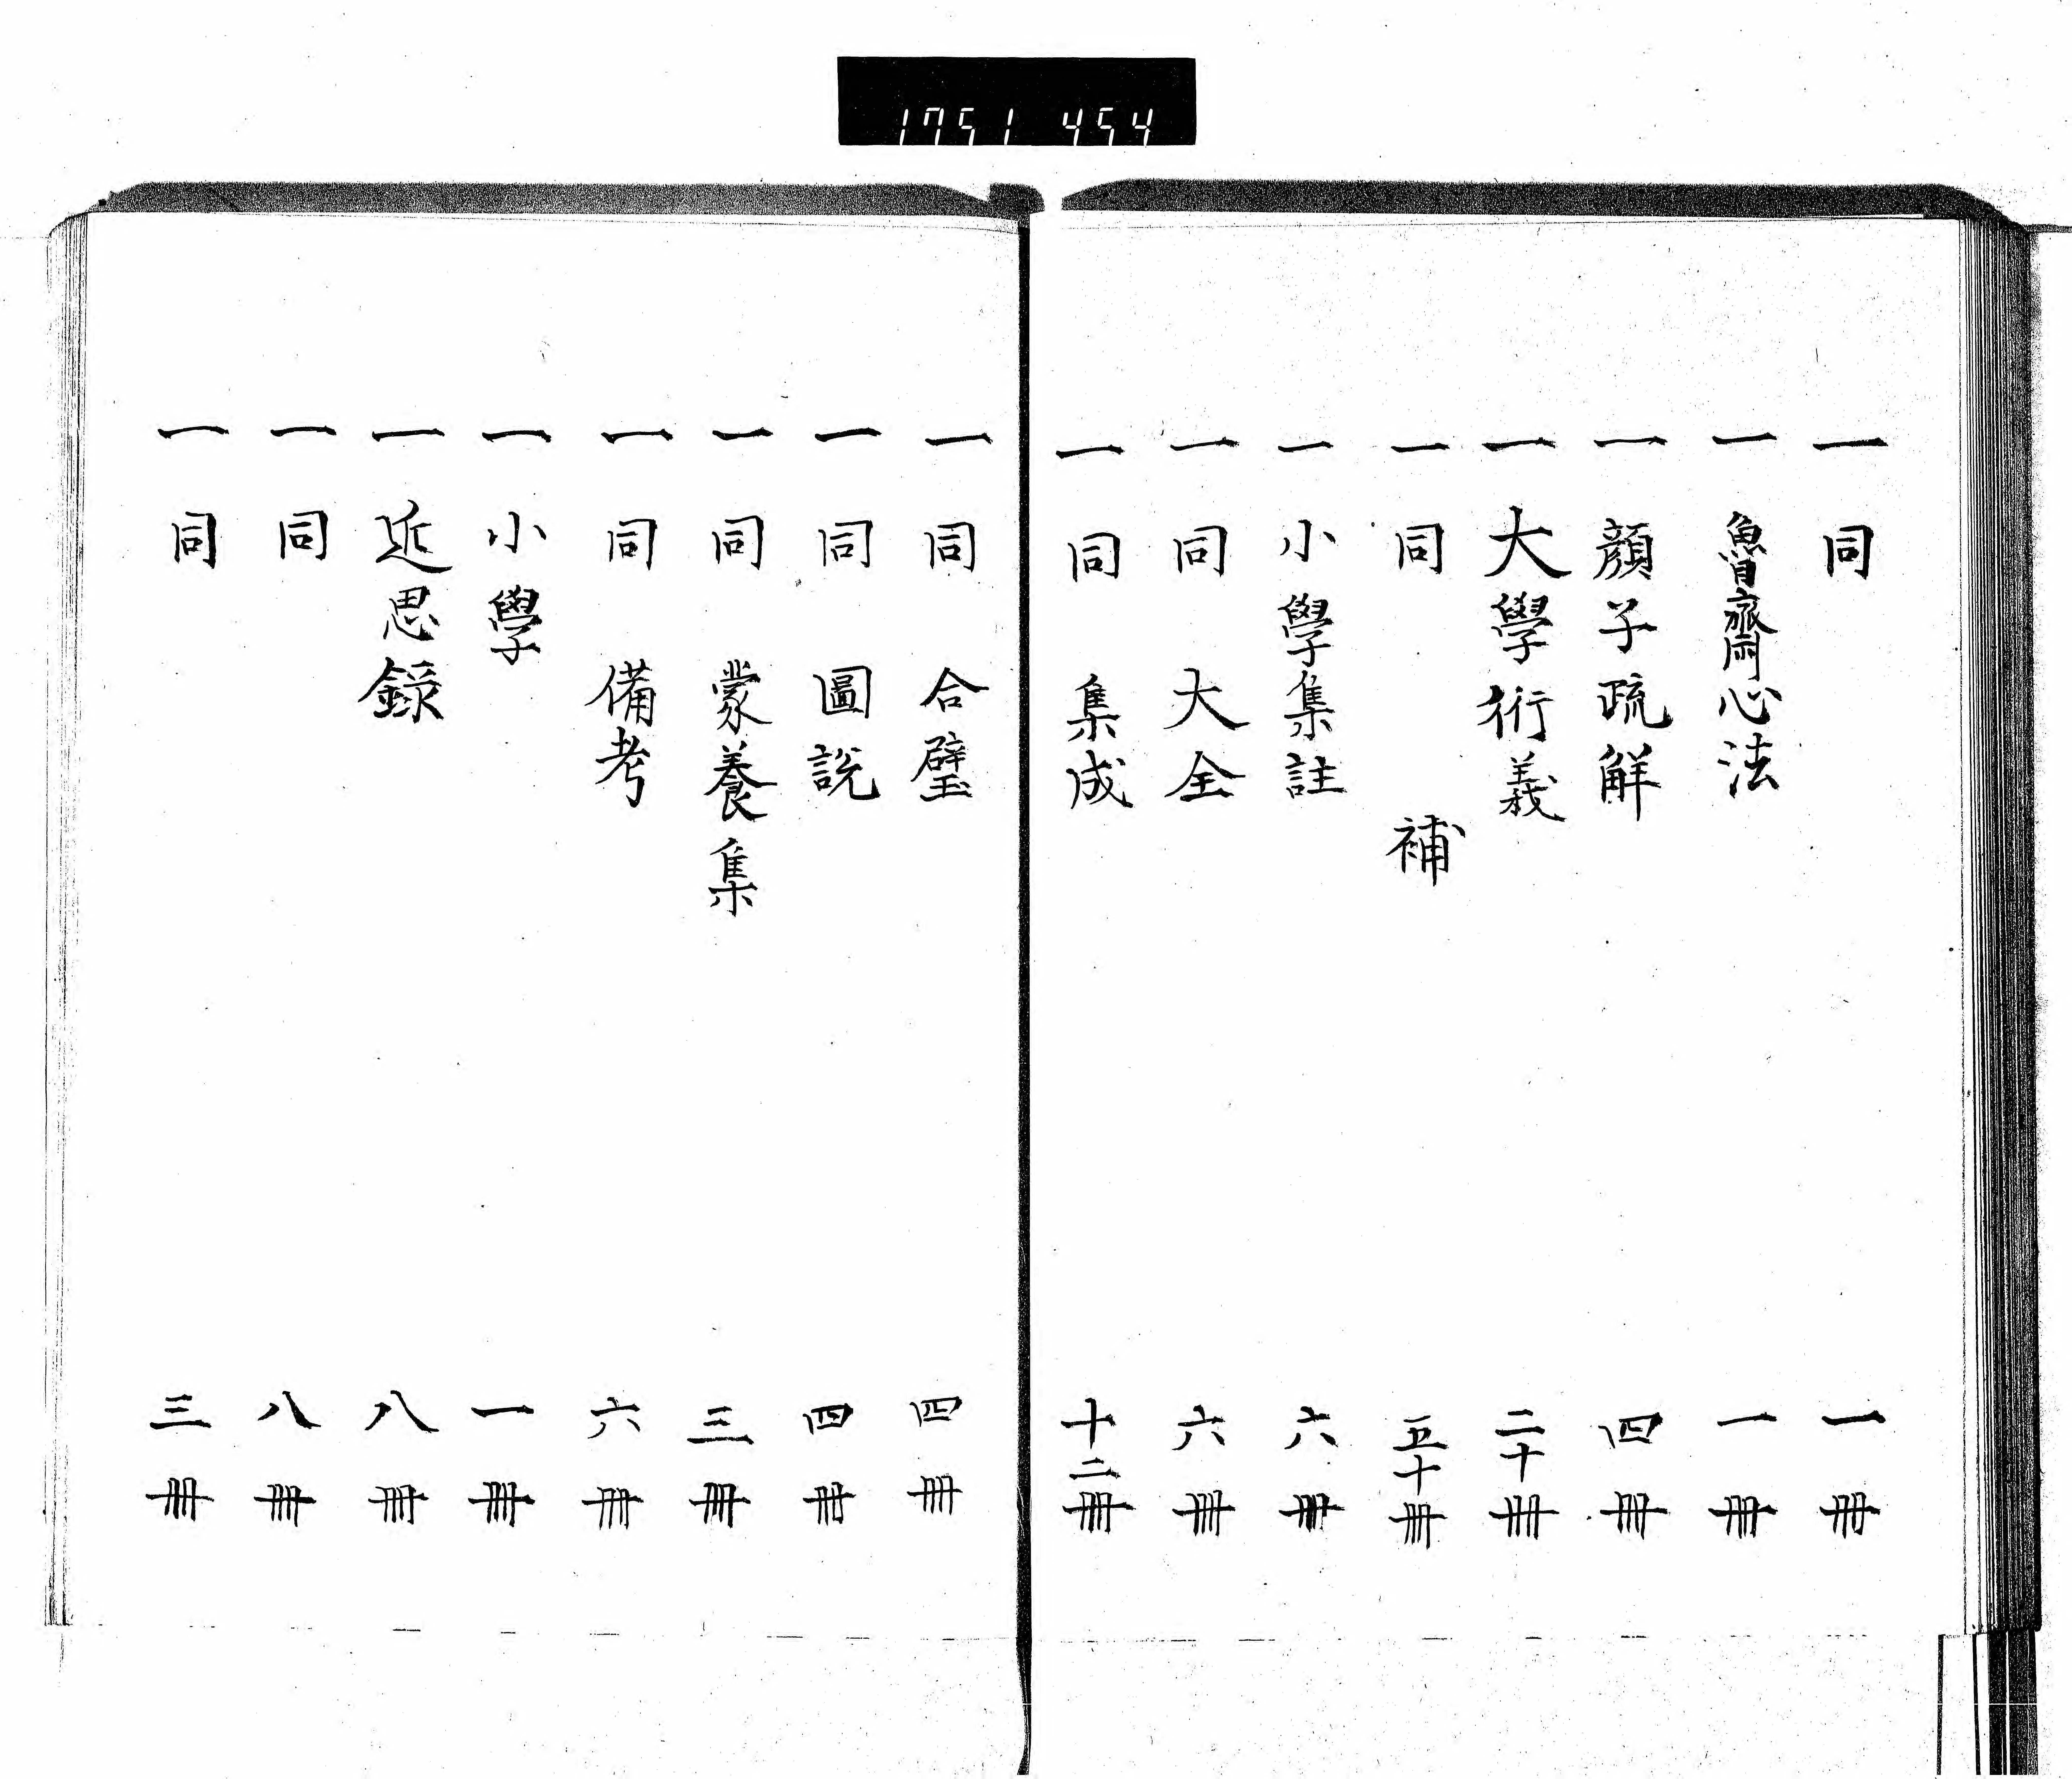 1751 454
一 同 一冊
一 魯齋心法 一冊
一 顔子疏解 四冊
一 大學衍義 二十冊
一 同 補 五十冊
一 小學集註 六冊
一 同 大全 六冊
一 同 集成 十二冊
一 同 合璧 四冊
一 同 圖說 四冊
一 同 蒙養集 三冊
一 同 備考 六冊
一 小學 一冊
一 近思録 八冊
一 同 八冊
一 同 三冊